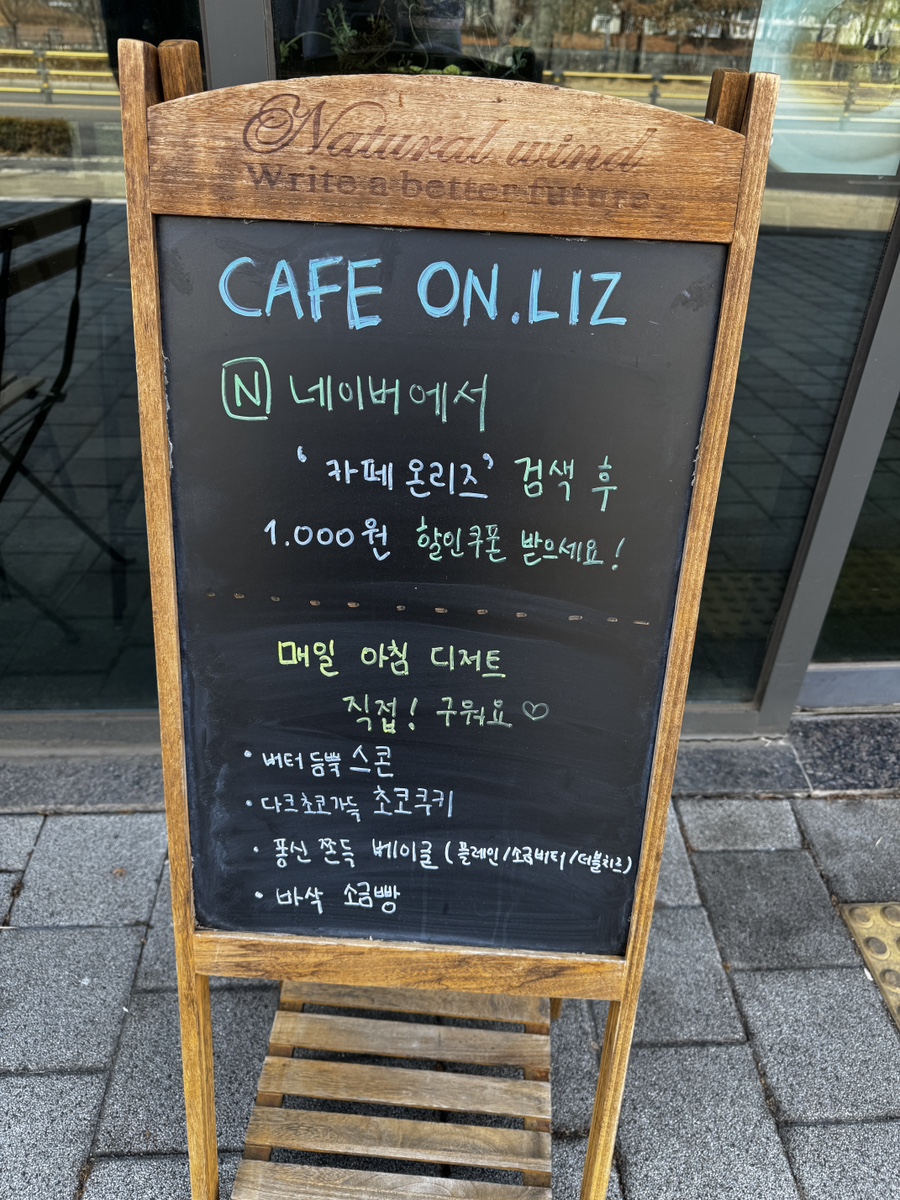 Natural wind
Write a better future
CAFE ON.LIZ
N 네이버에서
'카페 온리즈' 검색 후
1.000원 할인쿠폰 받으세요!
매일 아침 디저트
직접! 구워요♡
• 버터 듬뿍 스콘
• 다크초코가득 초코쿠키
• 퐁신 쫀득 베이글 (플레인/소금버터/더블치즈)
• 바삭 소금빵